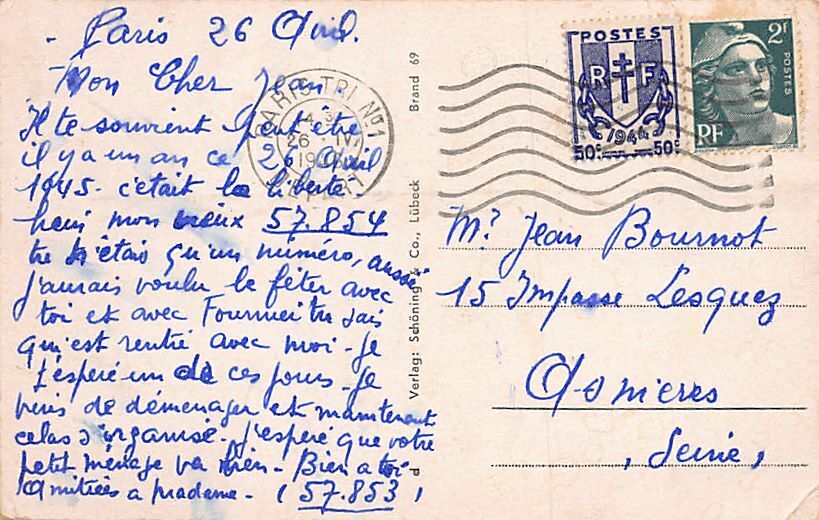 - Paris 26 Avril.
Mon Cher Jean
Il te souvient peut être
il y a un an ce 26 Avril
1945. c'était la liberté
hein mon vieux 57.854
tu n'étais qu'un numéro, aussi
j'aurais voulu le fêter avec
toi et avec Fournier tu sais
qu'est rentré avec moi - Je
l'espère un de ces jours - Je
viens de déménager et maintenant
celas s'organise. J'espère que votre
petit ménage va bien - Bien a toi
Amitiées a madame - (57.853)
PARIS TRI No 1
26 - IV
19
Verlag: Schöning & Co., Lübeck
Brand 69
POSTES
RF
1944
50c 50c
2F
POSTES
RF
Mr. Jean Bournot
15 Impasse Lesquez
Asnieres
(Seine)